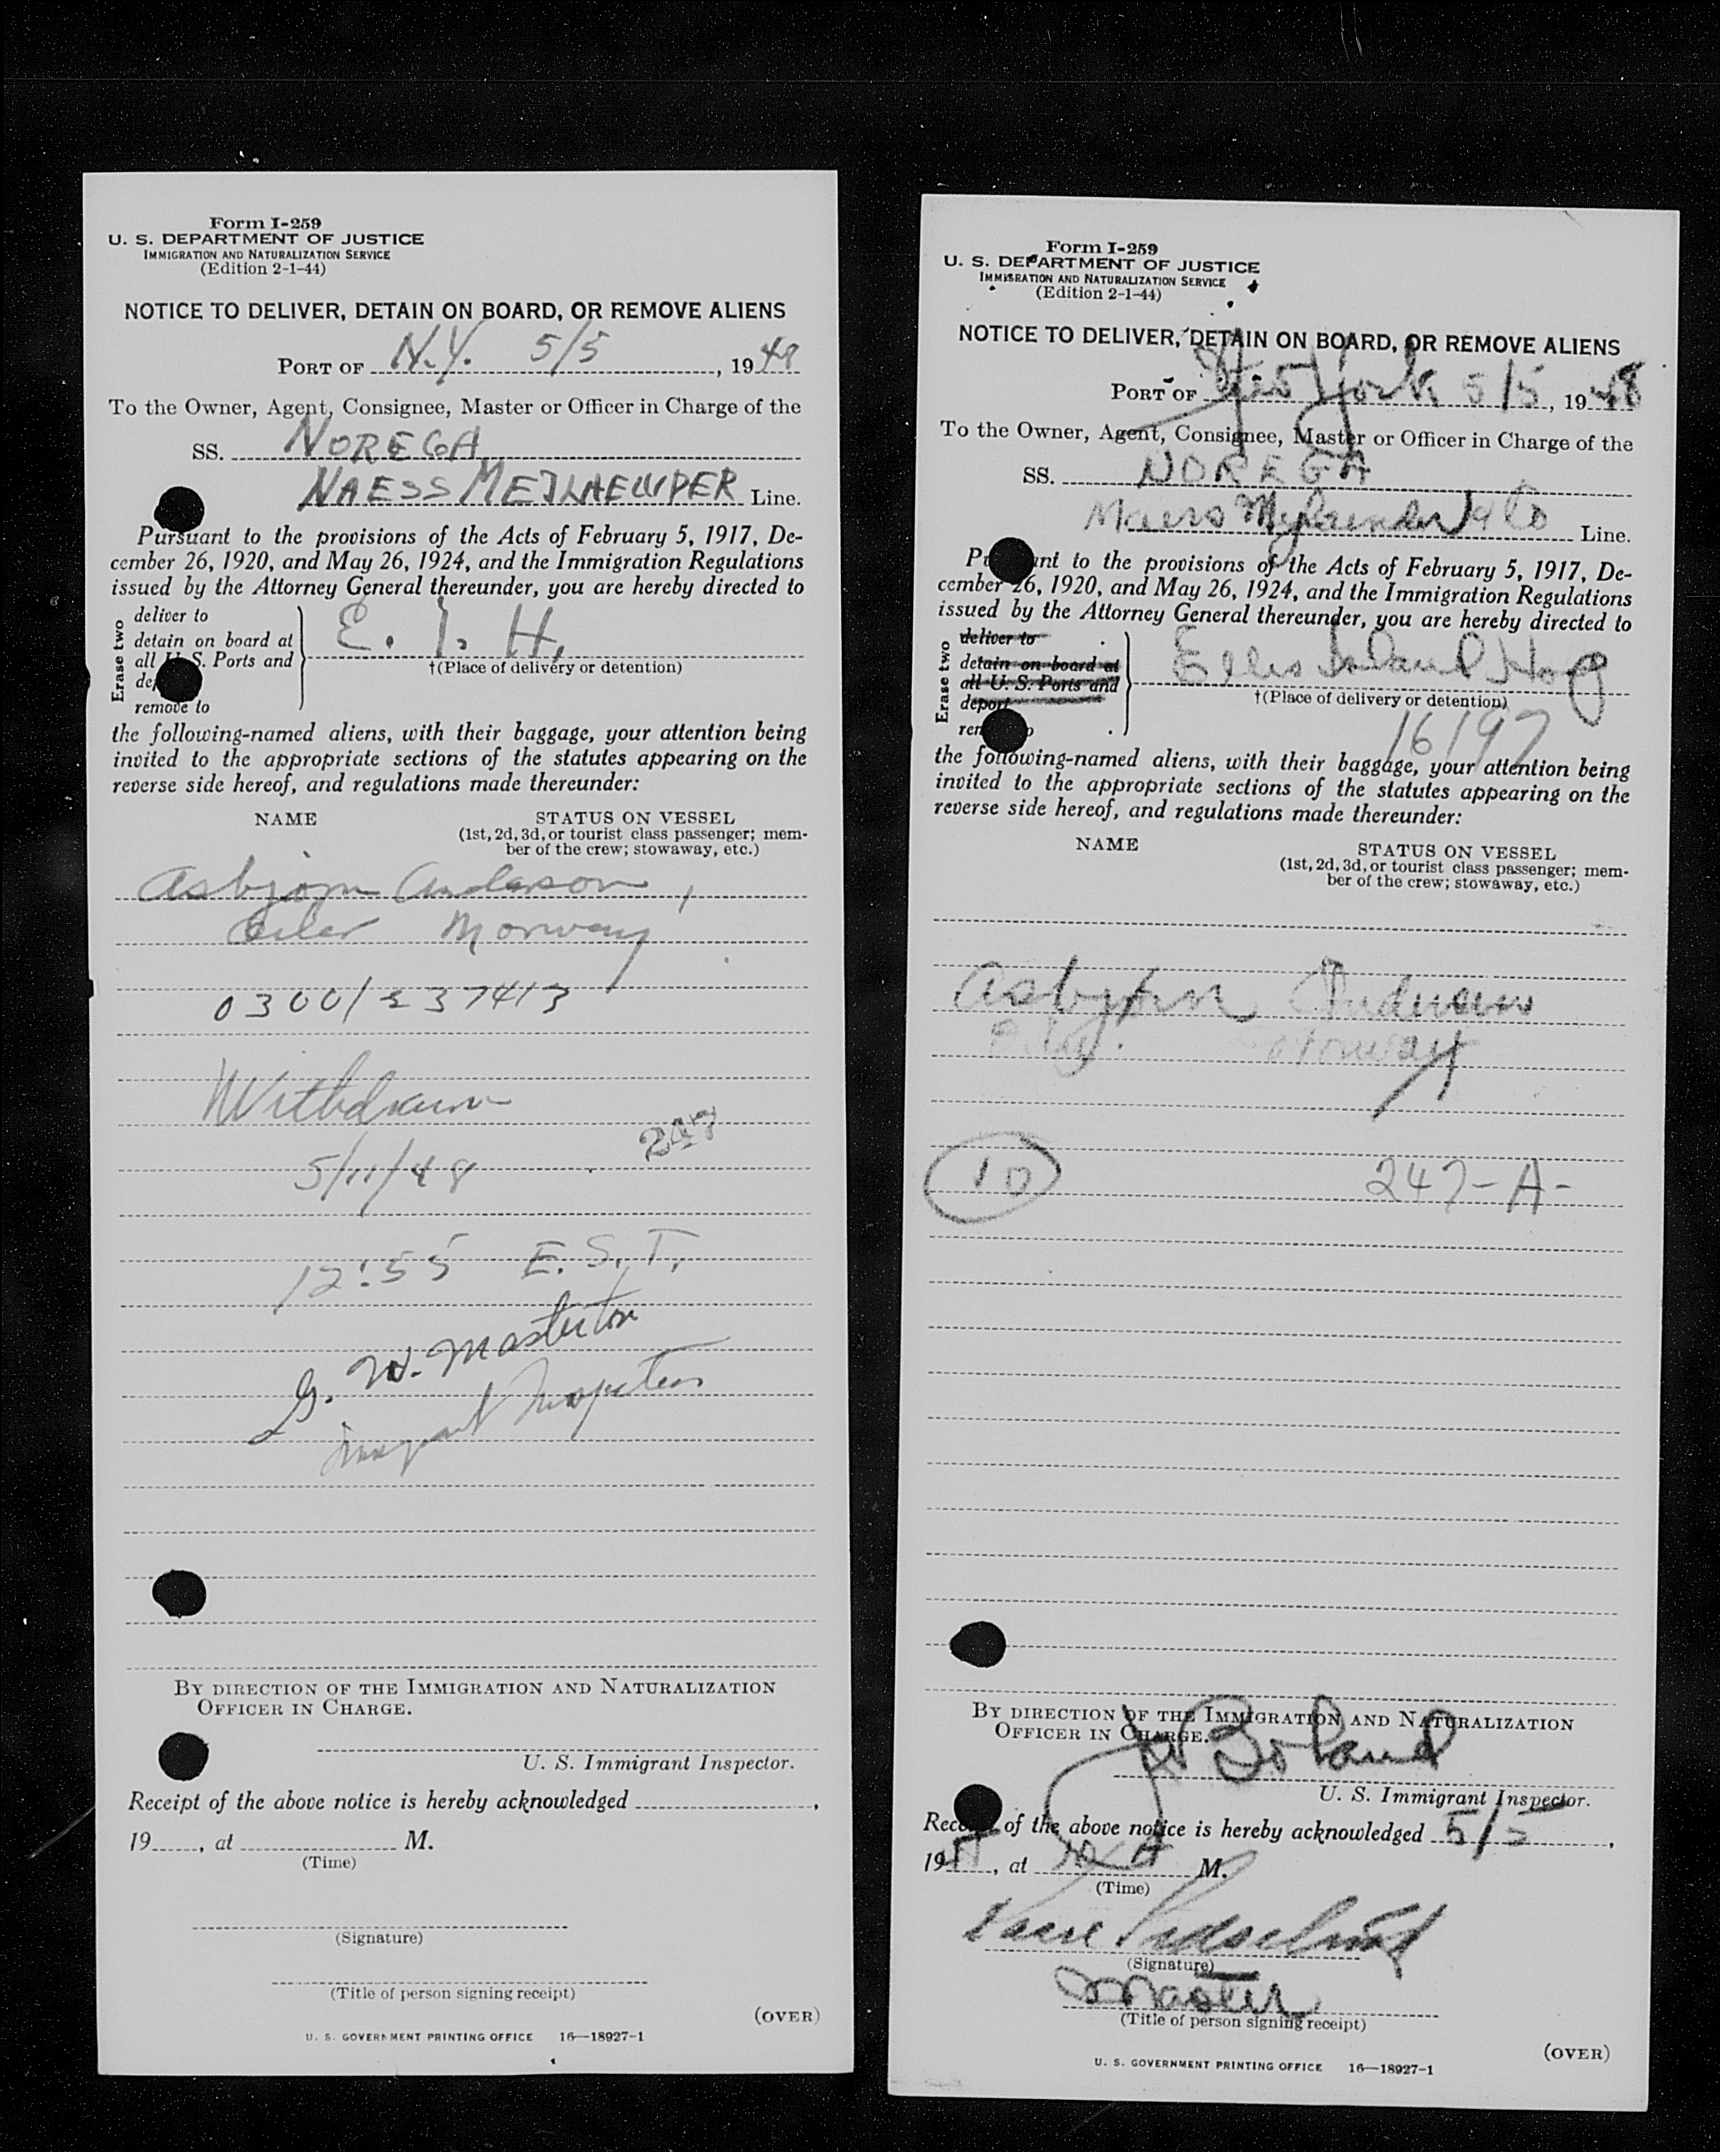 Form I-259
U. S. DEPARTMENT OF JUSTICE
IMMIGRATION AND NATURALIZATION SERVICE
(Edition 2-1-44)
NOTICE TO DELIVER, DETAIN ON BOARD, OR REMOVE ALIENS
PORT OF N.Y. 5/5, 1948
To the Owner, Agent, Consignee, Master or Officer in Charge of the
SS. NOREGA
NAESS Line.
Pursuant to the provisions of the Acts of February 5, 1917, De-
cember 26, 1920, and May 26, 1924, and the Immigration Regulations
issued by the Attorney General thereunder, you are hereby directed to
Erase two
deliver to
detain on board at
all U. S. Ports and
remove to
E. I. H.
†(Place of delivery or detention)
the following-named aliens, with their baggage, your attention being
invited to the appropriate sections of the statutes appearing on the
reverse side hereof, and regulations made thereunder:
NAME
STATUS ON VESSEL
(1st, 2d, 3d, or tourist class passenger; mem-
ber of the crew; stowaway, etc.)
Asbjorn Anderson,
Oiler Norway
0300/237413
Withdrawn
247
5/11/48
12:55 E.S.T.
G. W. Masterton
Immigrant Inspector
BY DIRECTION OF THE IMMIGRATION AND NATURALIZATION
OFFICER IN CHARGE.
U. S. Immigrant Inspector.
Receipt of the above notice is hereby acknowledged ,
19 , at M.
(Time)
(Signature)
(Title of person signing receipt)
(OVER)
U. S. GOVERNMENT PRINTING OFFICE 16—18927-1
Form I-259
U. S. DEPARTMENT OF JUSTICE
IMMIGRATION AND NATURALIZATION SERVICE
(Edition 2-1-44)
NOTICE TO DELIVER, DETAIN ON BOARD, OR REMOVE ALIENS
PORT OF New York 5/5, 1948
To the Owner, Agent, Consignee, Master or Officer in Charge of the
SS. NOREGA
Line.
Pursuant to the provisions of the Acts of February 5, 1917, De-
cember 26, 1920, and May 26, 1924, and the Immigration Regulations
issued by the Attorney General thereunder, you are hereby directed to
Erase two
deliver to
detain on board at
all U. S. Ports and
deport
Ellis Island
†(Place of delivery or detention)
16197
the following-named aliens, with their baggage, your attention being
invited to the appropriate sections of the statutes appearing on the
reverse side hereof, and regulations made thereunder:
NAME
STATUS ON VESSEL
(1st, 2d, 3d, or tourist class passenger; mem-
ber of the crew; stowaway, etc.)
Asbjorn Anderson
Norway
10 247-A-
BY DIRECTION OF THE IMMIGRATION AND NATURALIZATION
OFFICER IN CHARGE.
Boland
U. S. Immigrant Inspector.
Receipt of the above notice is hereby acknowledged 5/5,
19 , at M.
(Time)
(Signature)
Master
(Title of person signing receipt)
(OVER)
U. S. GOVERNMENT PRINTING OFFICE 16—18927-1